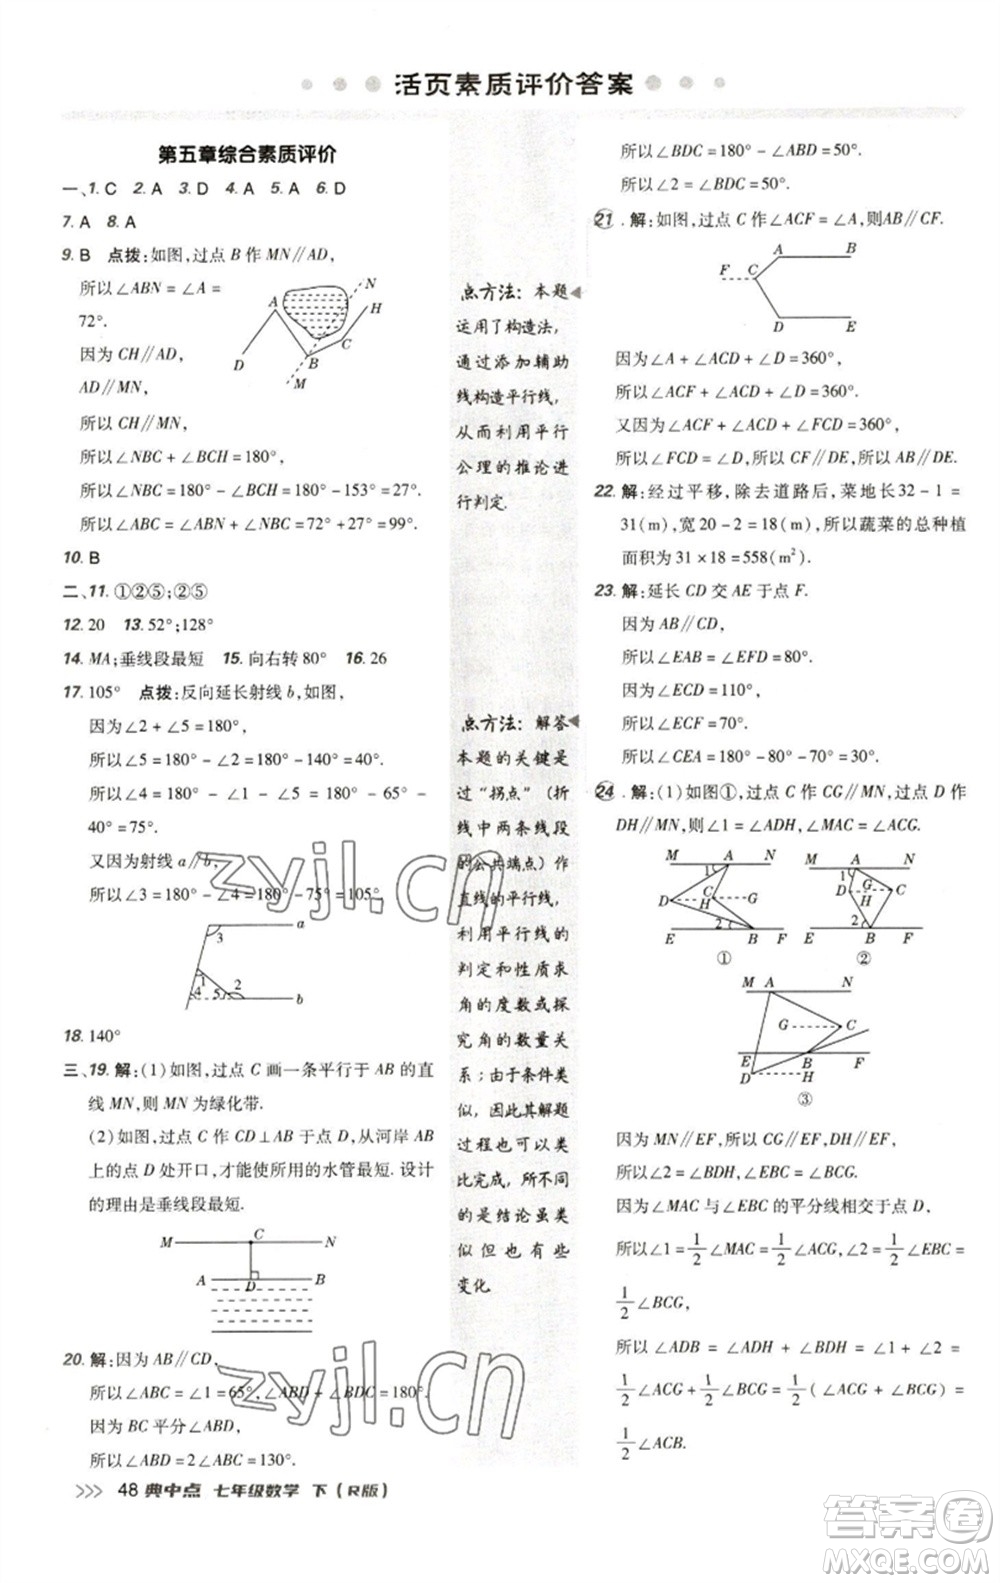 活页素质评价答案
第五章综合素质评价
一、1. C 2. A 3. D 4. A 5. A 6. D
7. A 8. A
9. B 点拨:如图,过点 B 作 MN∥AD,
所以∠ABN = ∠A =
72°.
因为 CH∥AD,
AD∥MN,
所以 CH∥MN,
A N H C B D M
所以∠NBC + ∠BCH = 180°,
所以∠NBC = 180° - ∠BCH = 180° - 153° = 27°.
所以∠ABC = ∠ABN + ∠NBC = 72° + 27° = 99°.
10. B
二、11. ①②⑤;②⑤
12. 20 13. 52°;128°
14. MA;垂线段最短 15. 向右转 80° 16. 26
17. 105° 点拨:反向延长射线 b,如图,
因为∠2 + ∠5 = 180°,
所以∠5 = 180° - ∠2 = 180° - 140° = 40°.
所以∠4 = 180° - ∠1 - ∠5 = 180° - 65° -
40° = 75°.
又因为射线 a∥b,
所以∠3 = 180° - ∠4 = 180° - 75° = 105°.
a 3 1 2 4 5 b
18. 140°
三、19. 解:(1)如图,过点 C 画一条平行于 AB 的直
线 MN,则 MN 为绿化带.
(2)如图,过点 C 作 CD⊥AB 于点 D,从河岸 AB
上的点 D 处开口,才能使所用的水管最短. 设计
的理由是垂线段最短.
M C N
A D B
20. 解:因为 AB∥CD,
所以∠ABC = ∠1 = 65°,∠ABD + ∠BDC = 180°.
因为 BC 平分∠ABD,
所以∠ABD = 2∠ABC = 130°.
点方法:本题
运用了构造法,
通过添加辅助
线构造平行线,
从而利用平行
公理的推论进
行判定.
点方法:解答
本题的关键是
过“拐点”(折
线中两条线段
的公共端点)作
直线的平行线,
利用平行线的
判定和性质求
角的度数或探
究角的数量关
系;由于条件类
似,因此其解题
过程也可以类
比完成,所不同
的是结论虽类
似但也有些
变化.
所以∠BDC = 180° - ∠ABD = 50°.
所以∠2 = ∠BDC = 50°.
21. 解:如图,过点 C 作∠ACF = ∠A,则AB∥CF.
A B
F C
D E
因为∠A + ∠ACD + ∠D = 360°,
所以∠ACF + ∠ACD + ∠D = 360°.
又因为∠ACF + ∠ACD + ∠FCD = 360°,
所以∠FCD = ∠D,所以 CF∥DE,所以 AB∥DE.
22. 解:经过平移,除去道路后,菜地长32 - 1 =
31(m),宽 20 - 2 = 18(m),所以蔬菜的总种植
面积为 31 × 18 = 558(m²).
23. 解:延长 CD 交 AE 于点 F.
因为 AB∥CD,
所以∠EAB = ∠EFD = 80°.
因为∠ECD = 110°,
所以∠ECF = 70°.
所以∠CEA = 180° - 80° - 70° = 30°.
24. 解:(1)如图①,过点 C 作 CG∥MN,过点 D 作
DH∥MN,则∠1 = ∠ADH,∠MAC = ∠ACG.
M A N 1 C G D H 2 E B F ①
M A N 1 G D C H 2 E B F ②
M A N G C E B F D H ③
因为 MN∥EF,所以 CG∥EF,DH∥EF,
所以∠2 = ∠BDH,∠EBC = ∠BCG.
因为∠MAC 与∠EBC 的平分线相交于点 D,
所以∠1 = 1/2∠MAC = 1/2∠ACG,∠2 = 1/2∠EBC =
1/2∠BCG,
所以∠ADB = ∠ADH + ∠BDH = ∠1 + ∠2 =
1/2∠ACG + 1/2∠BCG = 1/2(∠ACG + ∠BCG) =
1/2∠ACB.
48 典中点 七年级数学 下(R版)
zyjl.cn
zyjl.cn
答案圈
MXQE.COM